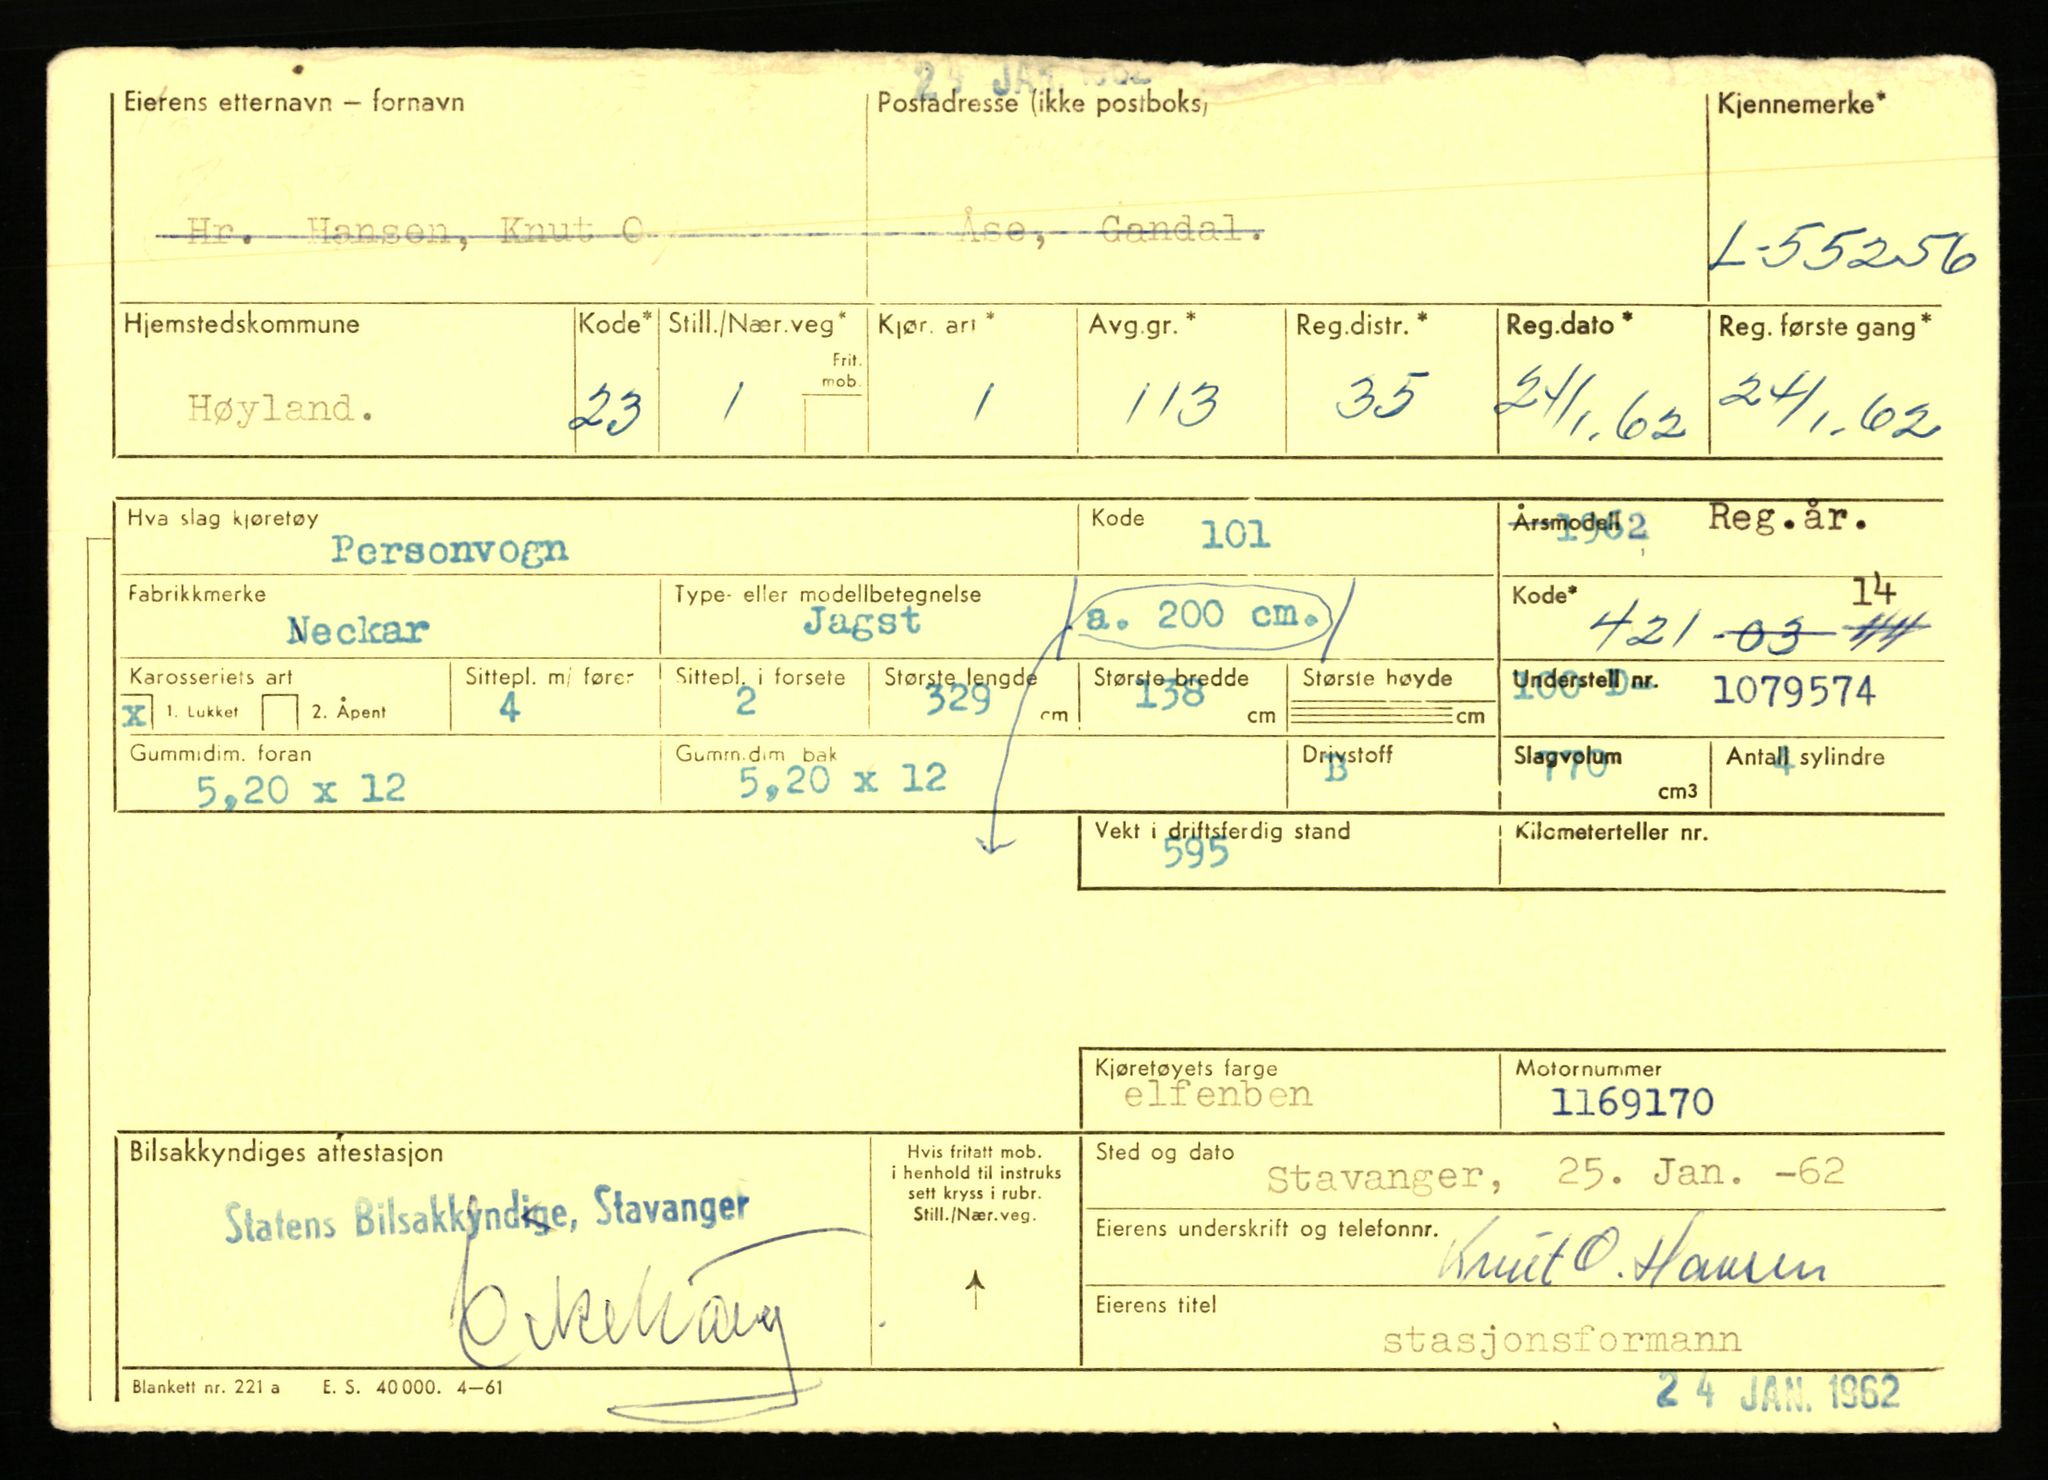 24 JAN. 1962
Eierens etternavn – fornavn Postadresse (ikke postboks) Kjennemerke*
Hr. Hansen, Knut O Åse, Gandal. L-55256
Hjemstedskommune Kode* Still./Nær.veg* Kjør. art* Avg.gr.* Reg.distr.* Reg.dato* Reg. første gang*
Frit. mob.
Høyland. 23 1 1 113 35 24/1.62 24/1.62
Hva slag kjøretøy Kode Årsmodell Reg.år.
Personvogn 101 1962
Fabrikkmerke Type- eller modellbetegnelse Kode* 14
Neckar Jagst a. 200 cm. 421 03 44
Karosseriets art Sittepl. m/ fører Sittepl. i forsete Største lengde Største bredde Største høyde Understell nr.
x 1. Lukket 2. Åpent 4 2 329 cm 138 cm cm 100 D– 1079574
Gummidim. foran Gummidim bak Drivstoff Slagvolum Antall sylindre
5,20 x 12 5,20 x 12 B 770 cm3 4
Vekt i driftsferdig stand Kilometerteller nr.
595
Kjøretøyets farge Motornummer
elfenben 1169170
Bilsakkyndiges attestasjon
Statens Bilsakkyndige, Stavanger
Hvis fritatt mob.
i henhold til instruks
sett kryss i rubr.
Still./Nær.veg.
Sted og dato
Stavanger, 25. Jan. -62
Eierens underskrift og telefonnr.
Knut O. Hansen
Eierens titel
stasjonsformann
Blankett nr. 221 a E. S. 40000. 4–61
24 JAN. 1962